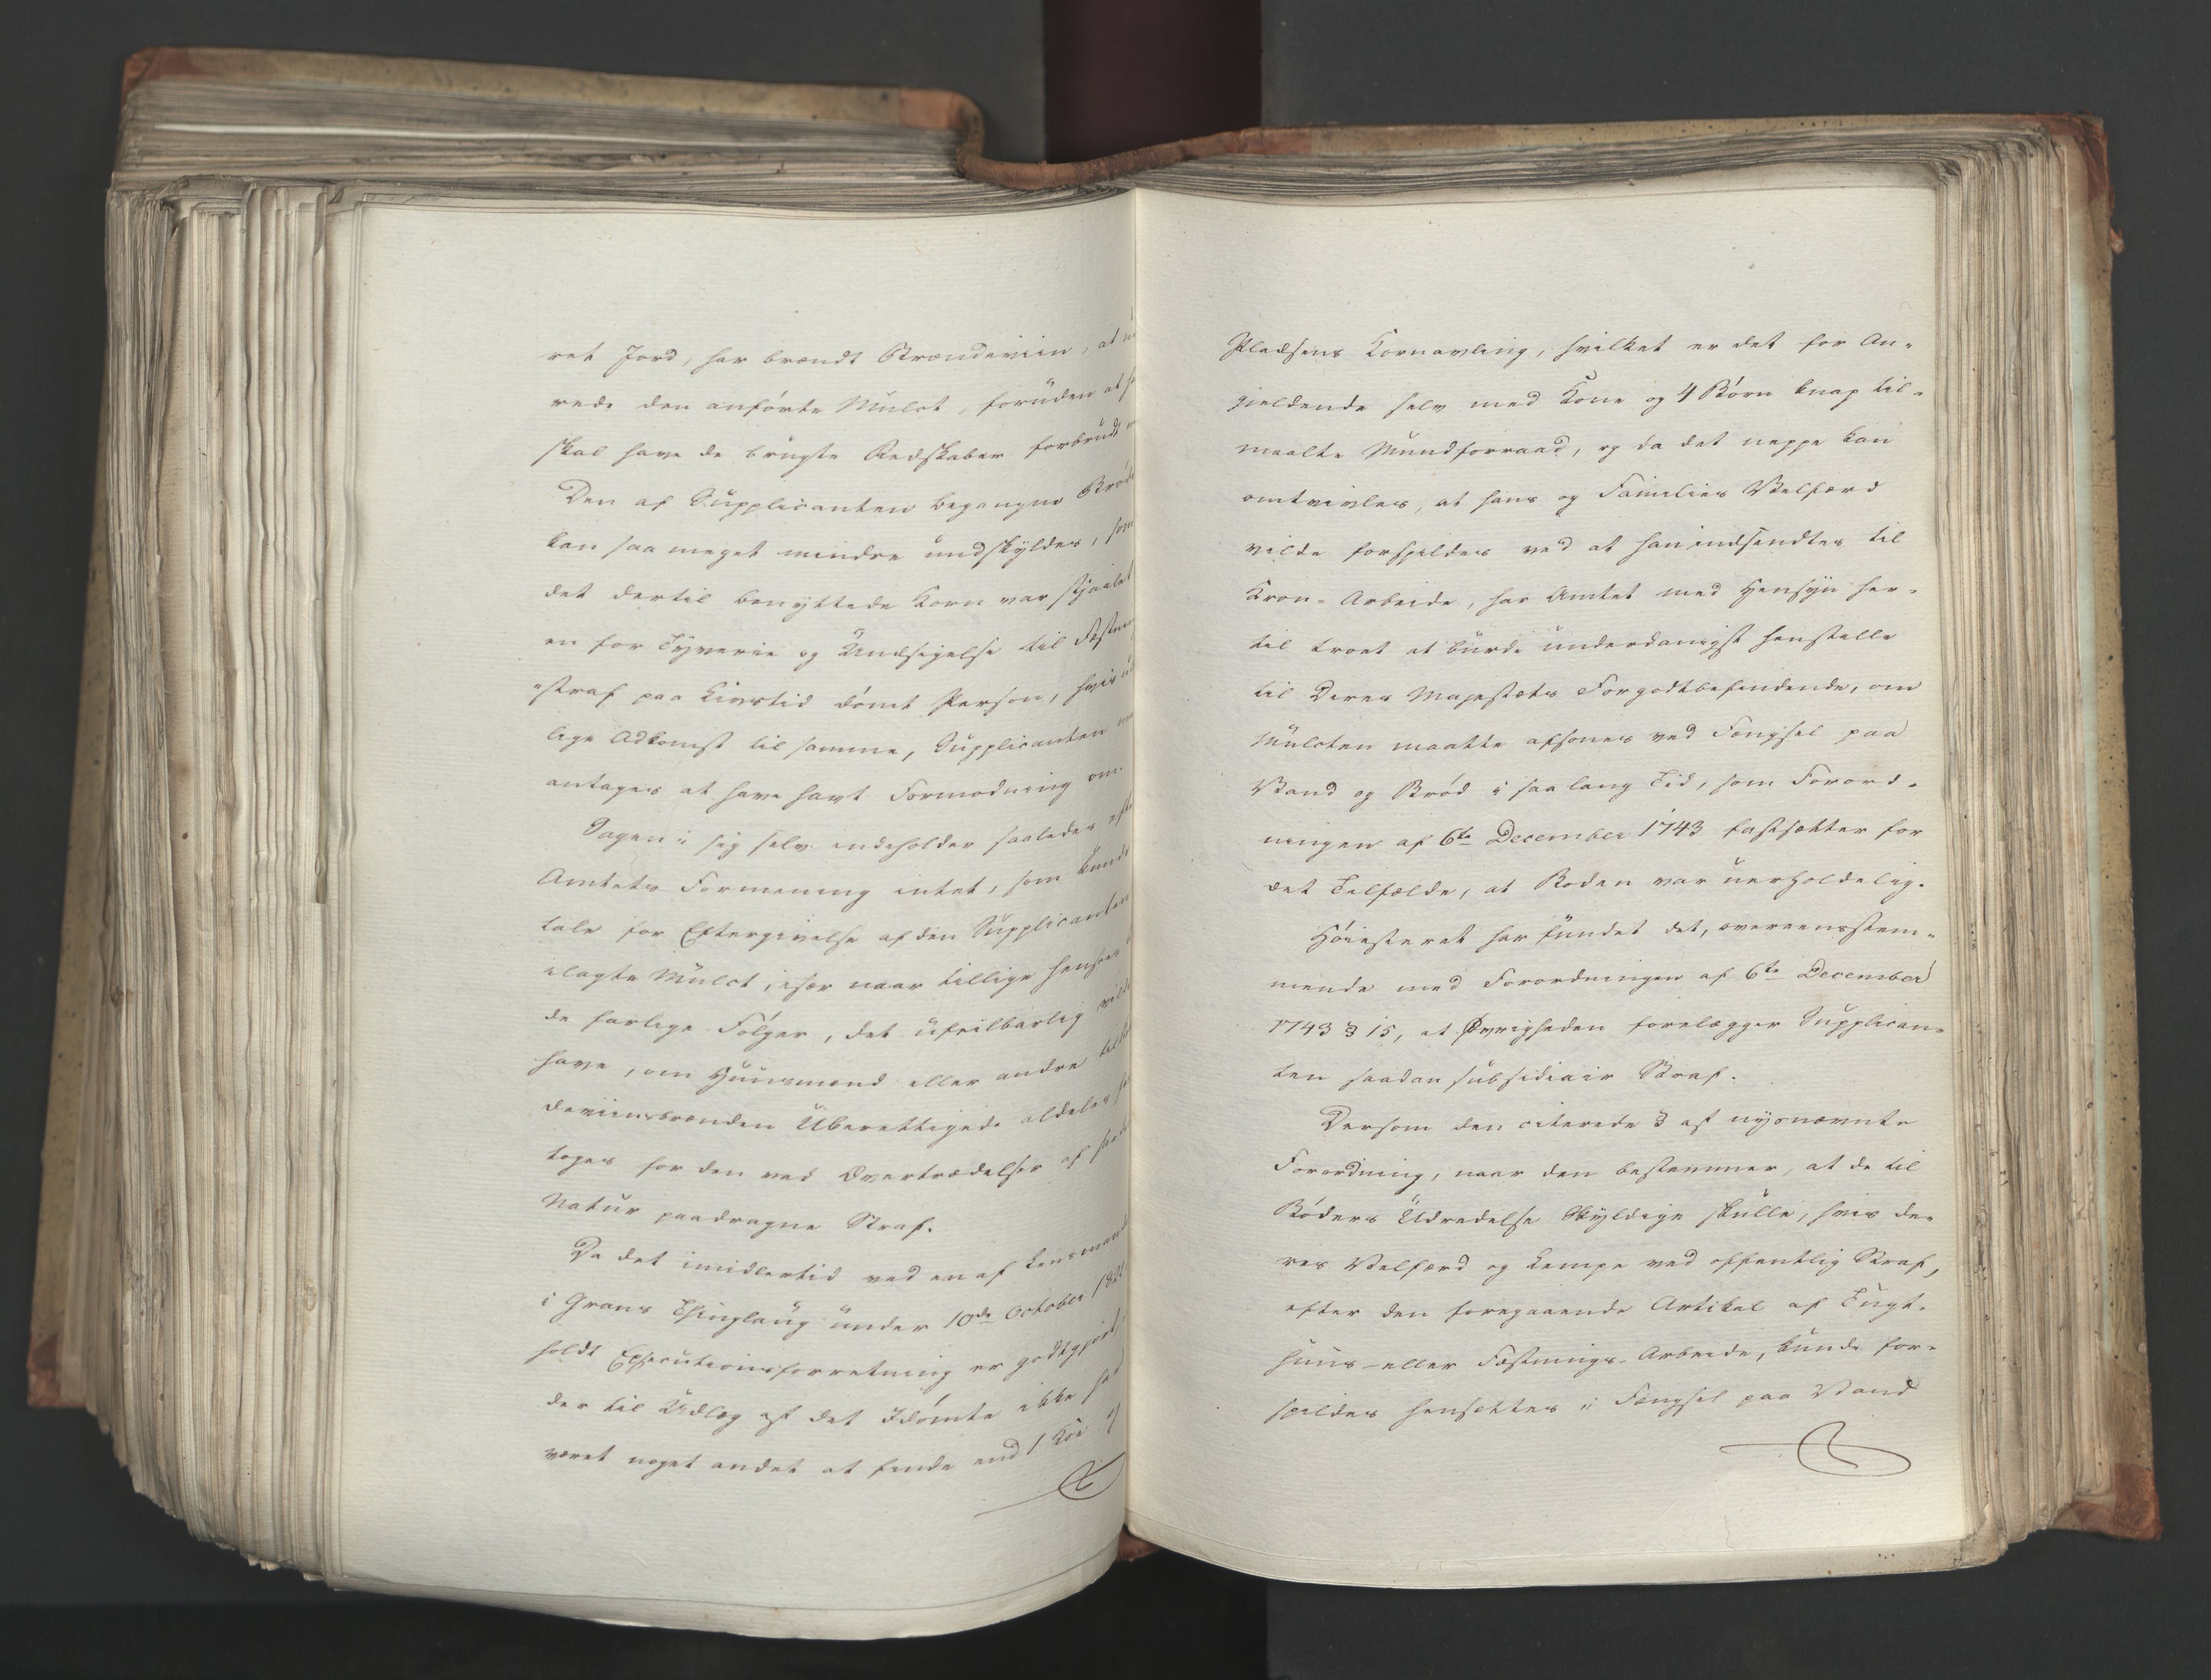 ret Jord, har brændt Brændeviin, at
rede den anførte Mulct, foruden at
skal have de brugte Redskaber forbrudt
Den af Supplicanten begangne Brøde
kan saa meget mindre undskyldes, som
det dertil benyttede Korn var stjaalet
en for Tyverie og Undsigelse til Fæstnings
"straf paa Livstid dømt Person, hvis
lige Adkomst til samme, Supplicanten
antages at have havt Formodning om.
Sagen i sig selv indeholder saaledes efter
Amtets Formening intet, som kunde
tale for Eftergivelse af den Supplicanten
ilagte Mulct, især naar tillige henses
de farlige Følger, det ufeilbarlig vilde
have, om Huusmænd eller andre til
deviinsbrænden Uberettigede aldeles
toges for den ved Overtrædelser af saadan
Natur paadragne Straf.
Da det imidlertid ved en af Lensmand
i Grans Thinglaug under 10de October 182
holdt Executionsforretning er godtgjort,
der til Udlæg af det Idømte ikke har
været noget andet at finde end 1 Koe og
Pladsens Kornavling, hvilket er det for An-
gieldende selv med Kone og 4 Børn knap til-
maalte Mundforraad, og da det neppe kan
omtvivles, at hans og Families Velfærd
vilde forspildes ved at han indsendtes til
Kron-Arbeide, har Amtet med Hensyn her-
til troet at burde underdanigst henstille
til Deres Majestæts Forgodtbefindende, om
Mulcten maatte afsones ved Fængsel paa
Vand og Brød i saa lang Tid, som Forord-
ningen af 6te December 1743 fastsætter for
det Tilfælde, at Boden var uerholdelig.
Høiesteret har fundet det, overeensstem-
mende med Forordningen af 6te December
1743 § 15, at Øvrigheden forelægger Supplican-
ten saadan subsidiair Straf.
Dersom den citerede § af nysnævnte
Forordning, naar den bestemmer, at de til
Bøders Udredelse Skyldige skulle, hvis de-
res Velfærd og Lempe ved offentlig Straf,
efter den foregaaende Artikel af Tugt-
huus- eller Fæstnings-Arbeide, kunde for-
spildes hensættes i Fængsel paa Vand